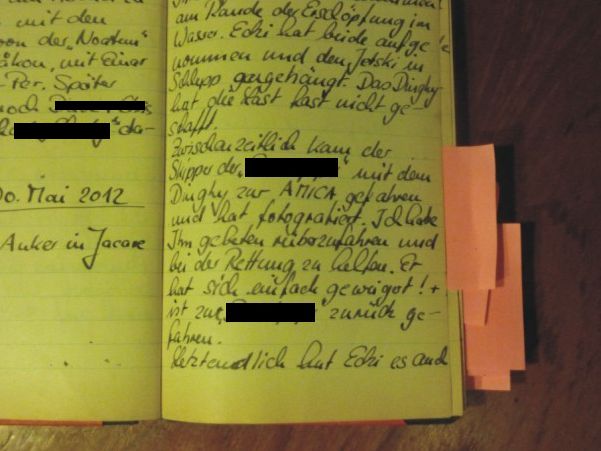 mit den
von der „Noatun"
mit Einar
Per. Später
noch
Do. Mai 2012
Anker in Jacare
am Rande der Erschöpfung im
Wasser. Ecki hat beide aufge-
nommen und den Jetski in
Schlepp gangehängt. Das Dinghy
hat die Last fast nicht ge-
schafft.
Zwischenzeitlich kam der
Skipper der „ " mit dem
Dinghy zur AMICA gefahren
und hat fotografiert. Ich habe
Ihn gebeten rüberzufahren und
bei der Rettung zu helfen. Er
hat sich einfach geweigert! +
ist zur „ " zurück ge-
fahren.
Letztendlich hat Ecki es auch